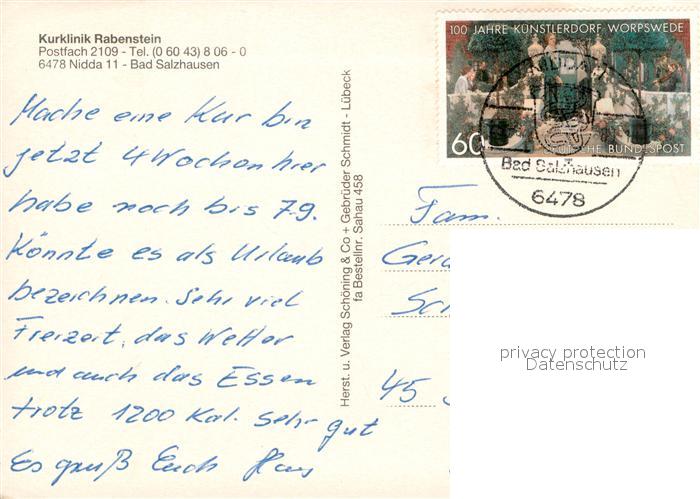 Kurklinik Rabenstein
Postfach 2109 - Tel. (0 60 43) 8 06 - 0
6478 Nidda 11 - Bad Salzhausen
Mache eine Kur bin
jetzt 4 Wochen hier
habe noch bis 7.9.
Könnte es als Urlaub
bezeichnen. Sehr viel
Freizeit, das Wetter
und auch das Essen
trotz 1200 Kal. sehr gut
Es grüß Euch Hans
Herst. u. Verlag Schöning & Co + Gebrüder Schmidt - Lübeck
fa Bestellnr. Sahau 458
100 JAHRE KÜNSTLERDORF WORPSWEDE
60
DEUTSCHE BUNDESPOST
NIDDA
Bad Salzhausen
6478
Fam.
45
privacy protection
Datenschutz